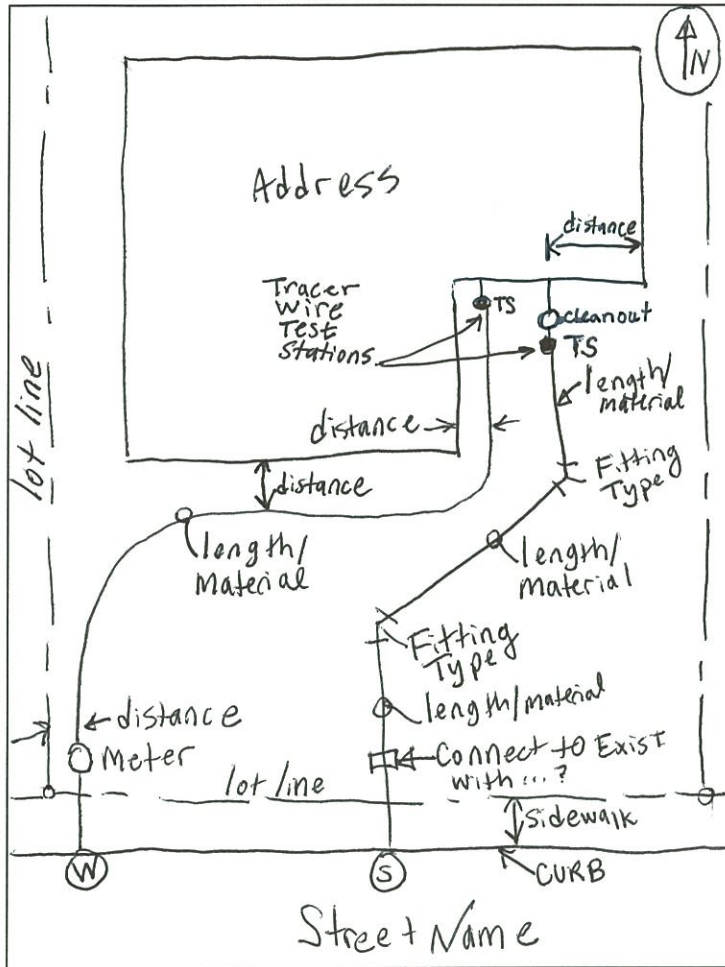 N
Address
distance
Tracer
Wire
Test
Stations
TS
cleanout
TS
length/
material
lot line
distance
distance
Fitting
Type
length/
material
length/
material
Fitting
Type
length/material
distance
Meter
Connect to Exist
with...?
lot line
Sidewalk
W
S
CURB
Street Name